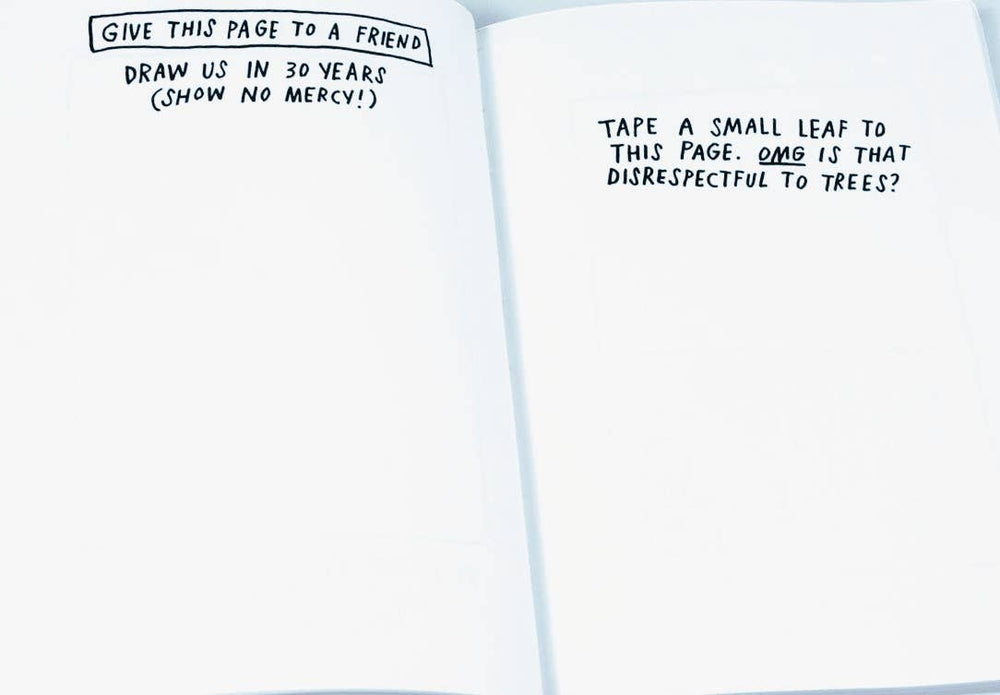 GIVE THIS PAGE TO A FRIEND
DRAW US IN 30 YEARS
(SHOW NO MERCY!)
TAPE A SMALL LEAF TO
THIS PAGE. OMG IS THAT
DISRESPECTFUL TO TREES?